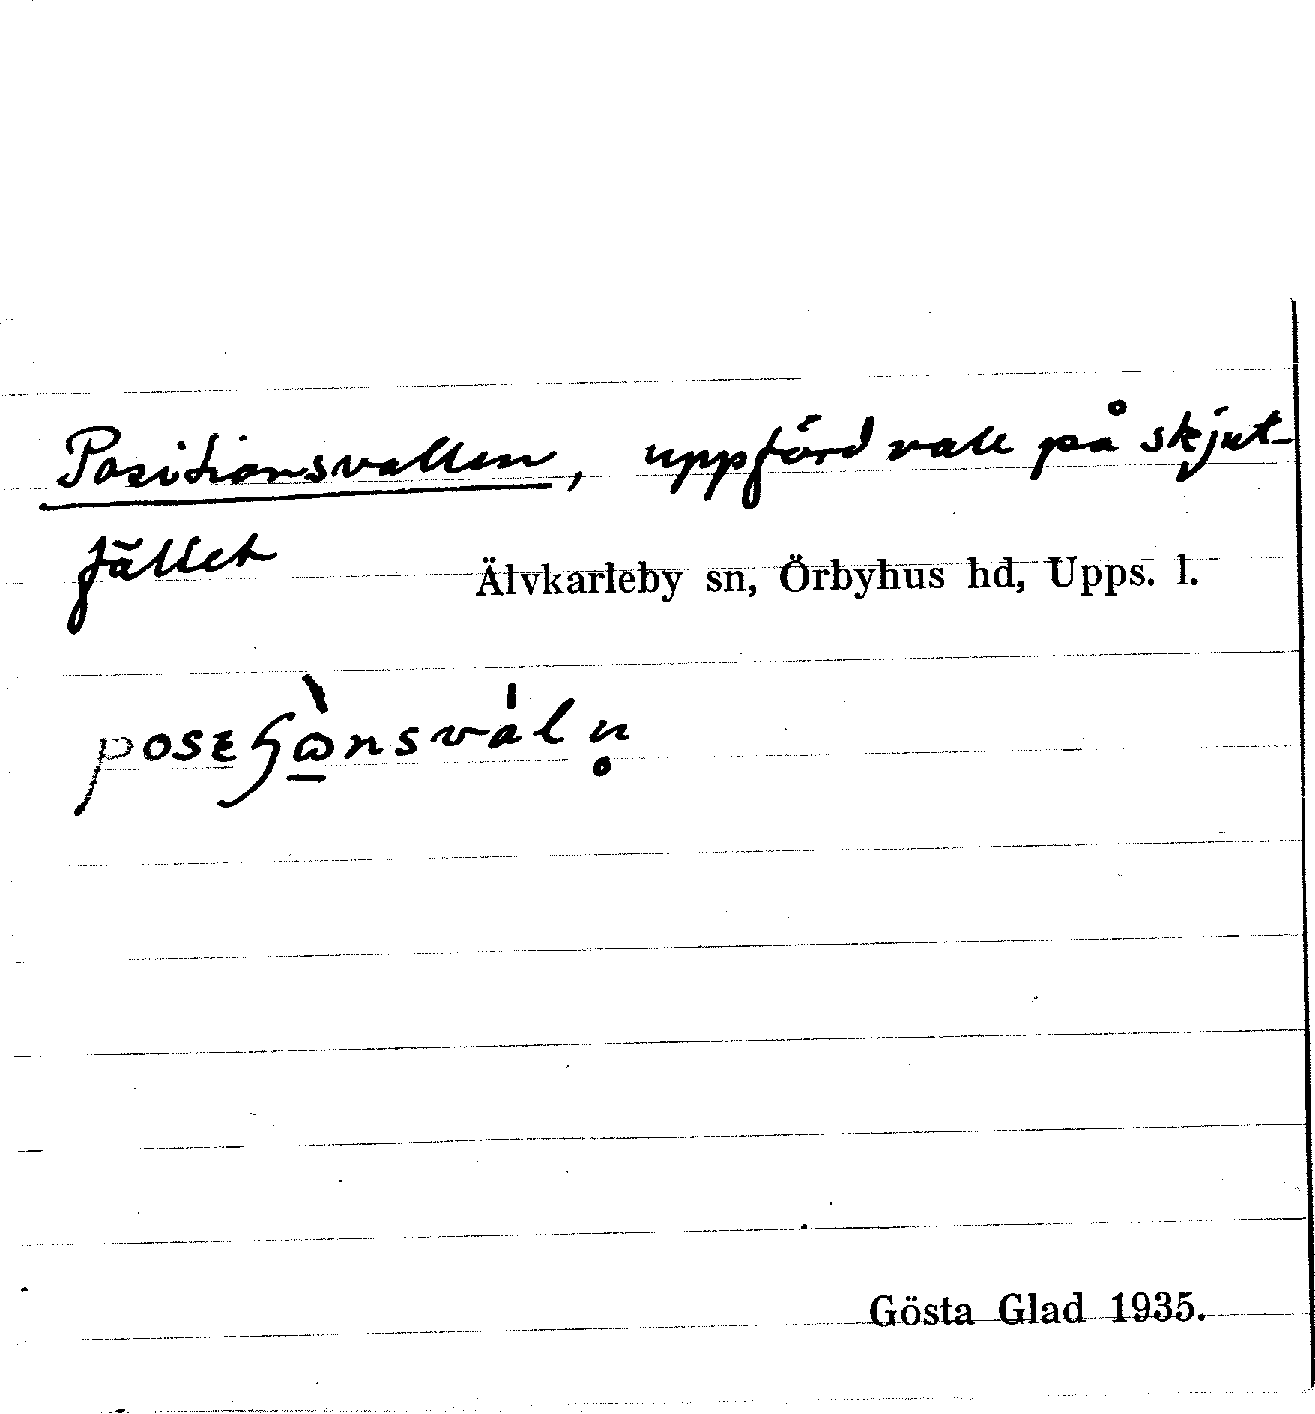 Positionsvallen, uppförd vall på skjut-
fältet
Älvkarleby sn, Örbyhus hd, Upps. l.
Gösta Glad 1935.